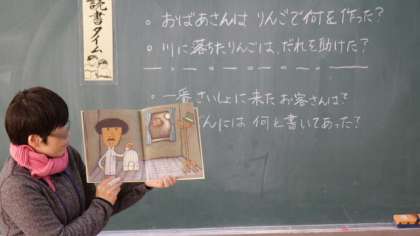 読書タイム
○ おばあさんは りんごで何を作った?
○ 川に落ちたりんごは、だれを助けた?
○ 一番さいしょに来た お客さんは?
んには 何と書いてあった?